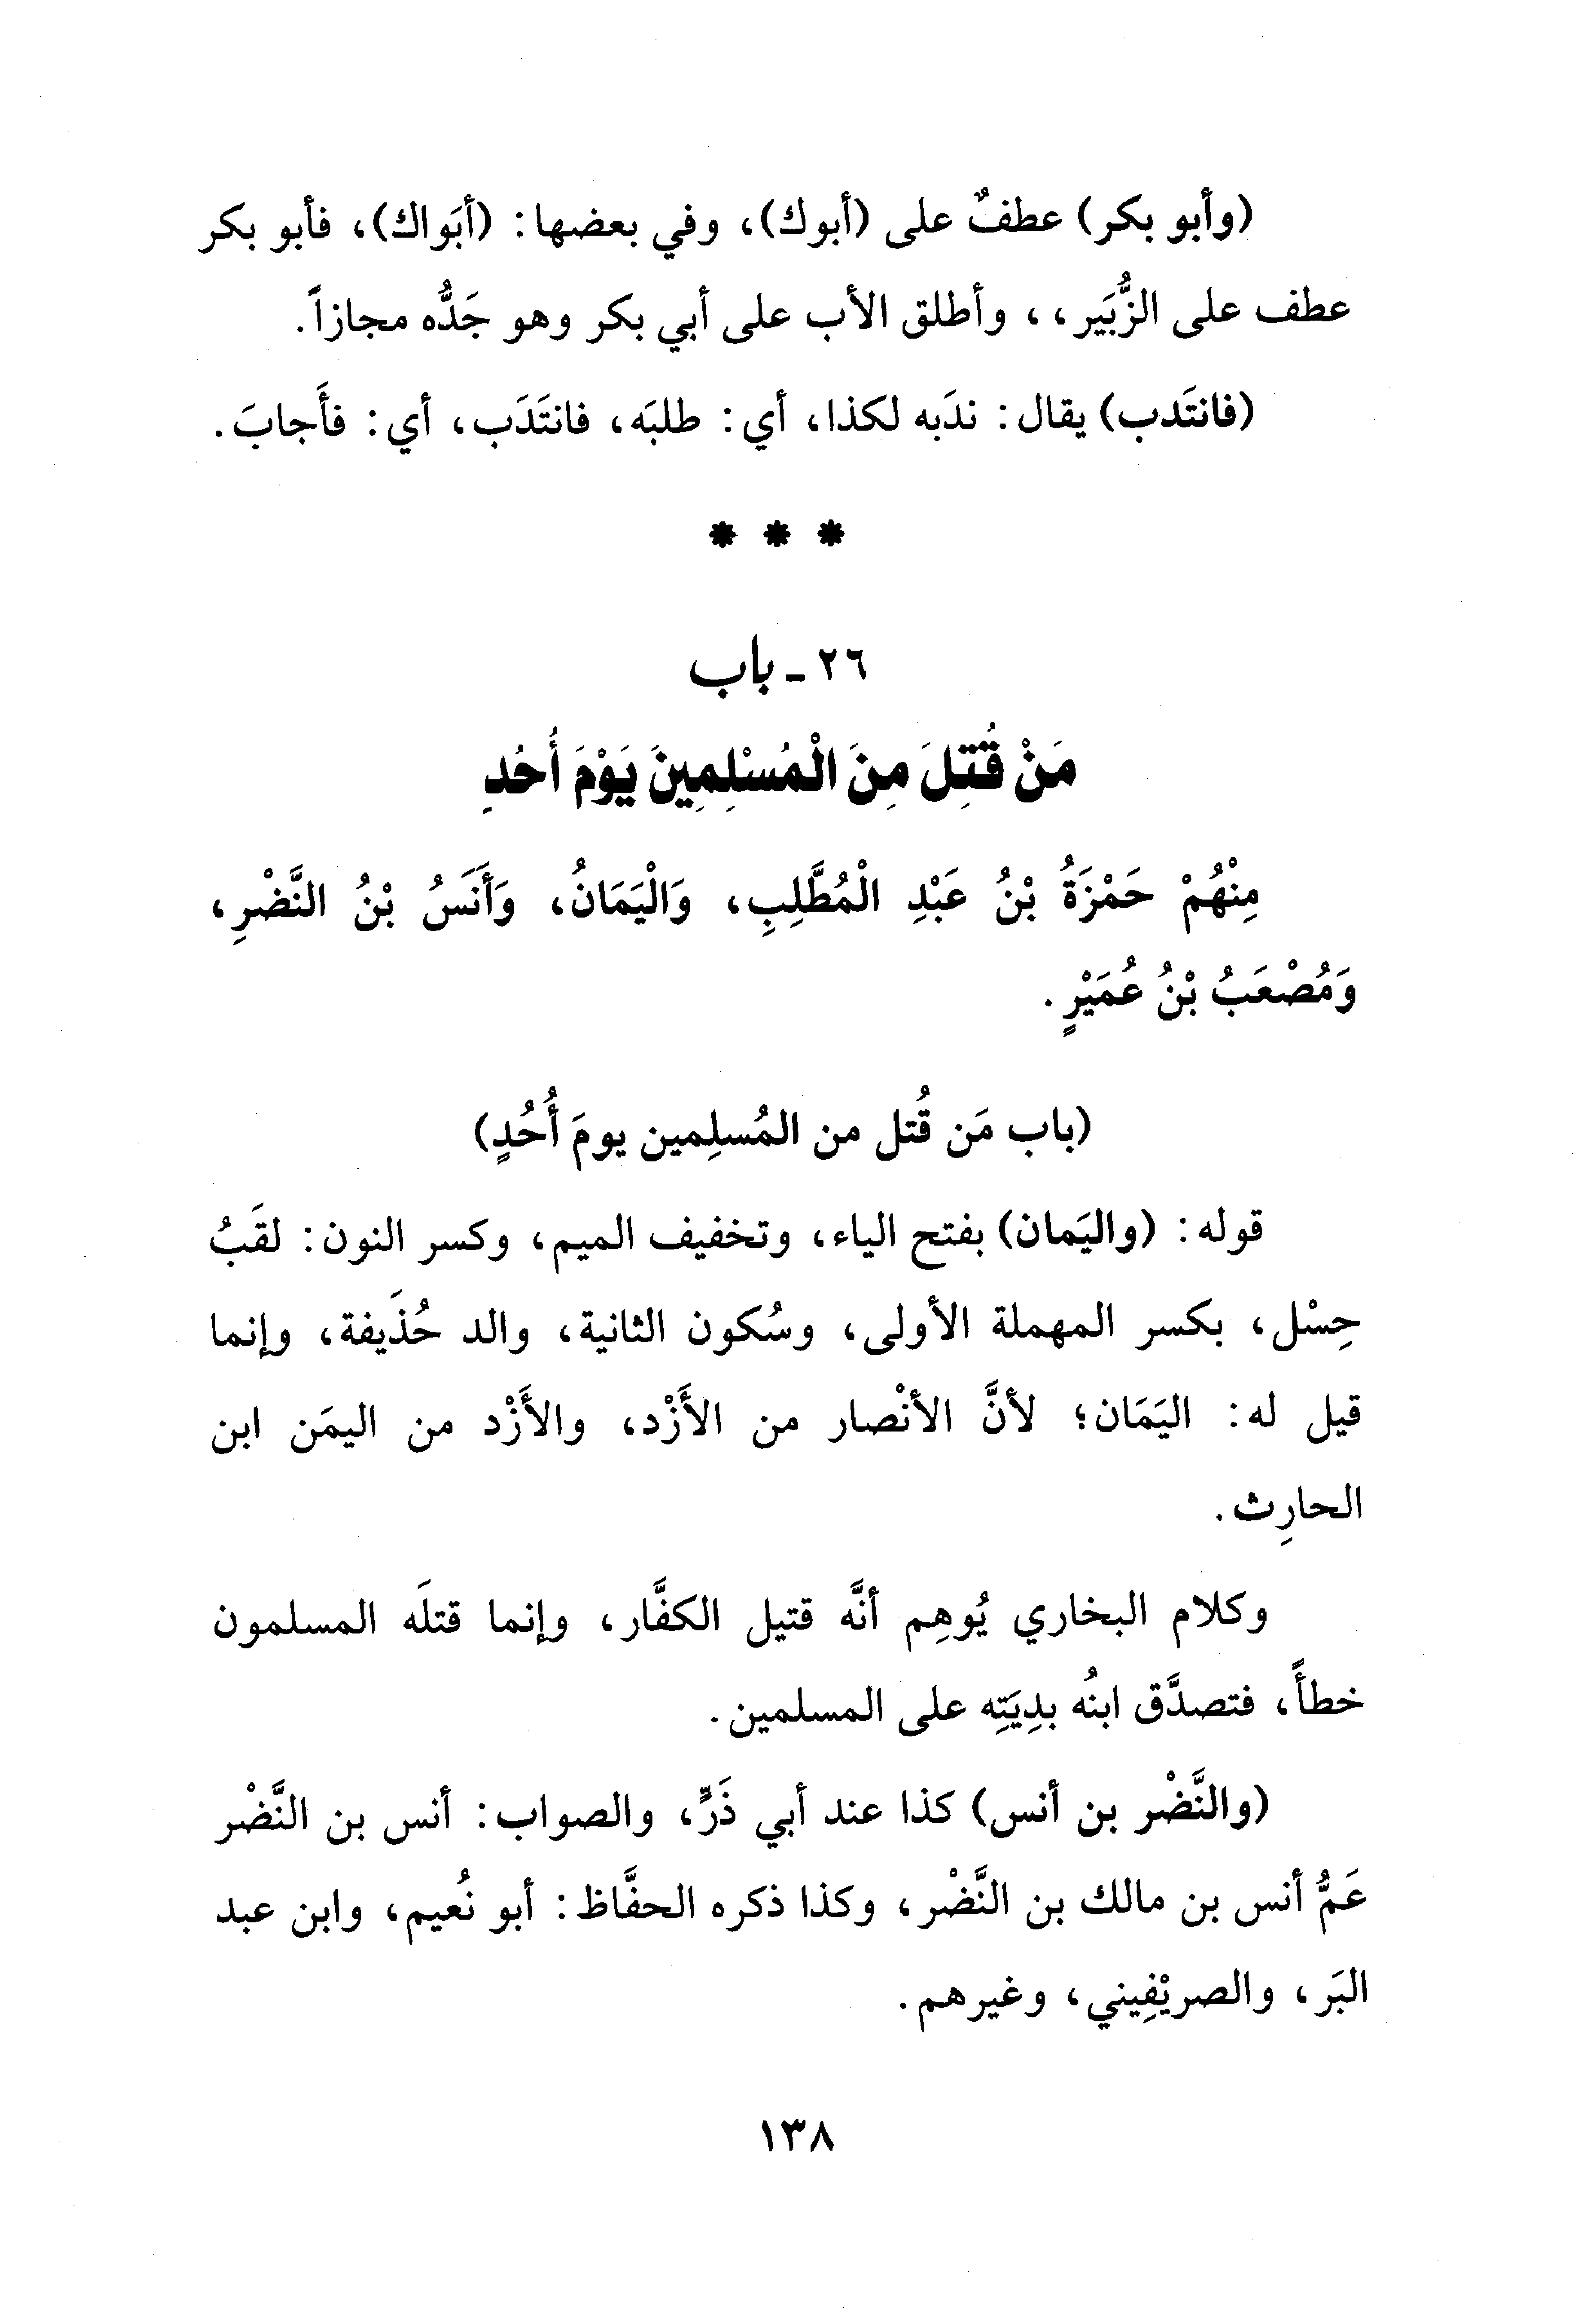 (وأبو بكر) عطفٌ على (أبوك)، وفي بعضها: (أبَواك)، فأبو بكر
عطف على الزُّبَير،، وأطلق الأب على أبي بكر وهو جَدُّه مجازاً.
(فانتَدب) يقال: ندَبه لكذا، أي: طلبَه، فانتَدَب، أي: فأَجابَ.
* * *
٢٦ - باب
مَنْ قُتِلَ مِنَ الْمُسْلِمِينَ يَوْمَ أُحُدِ
مِنْهُمْ حَمْزَةُ بْنُ عَبْدِ الْمُطَّلِبِ، وَالْيَمَانُ، وَأَنَسُ بْنُ النَّضْرِ،
وَمُصْعَبُ بْنُ عُمَيْرٍ.
(باب مَن قُتل من المُسلِمين يومَ أُحُدٍ)
قوله: (واليَمان) بفتح الياء، وتخفيف الميم، وكسر النون: لقَبُ
حِسْل، بكسر المهملة الأولى، وسُكون الثانية، والد حُذَيفة، وإنما
قيل له: اليَمَان؛ لأنَّ الأنْصار من الأَزْد، والأَزْد من اليمَن ابن
الحارِث.
وكلام البخاري يُوهِم أنَّه قتيل الكفَّار، وإنما قتلَه المسلمون
خطأً، فتصدَّق ابنُه بدِيَتِه على المسلمين.
(والنَّضْر بن أنس) كذا عند أبي ذَرٍّ، والصواب: أنس بن النَّضْر
عَمُّ أنس بن مالك بن النَّضْر، وكذا ذكره الحفَّاظ: أبو نُعيم، وابن عبد
البَر، والصريْفِيني، وغيرهم.
١٣٨